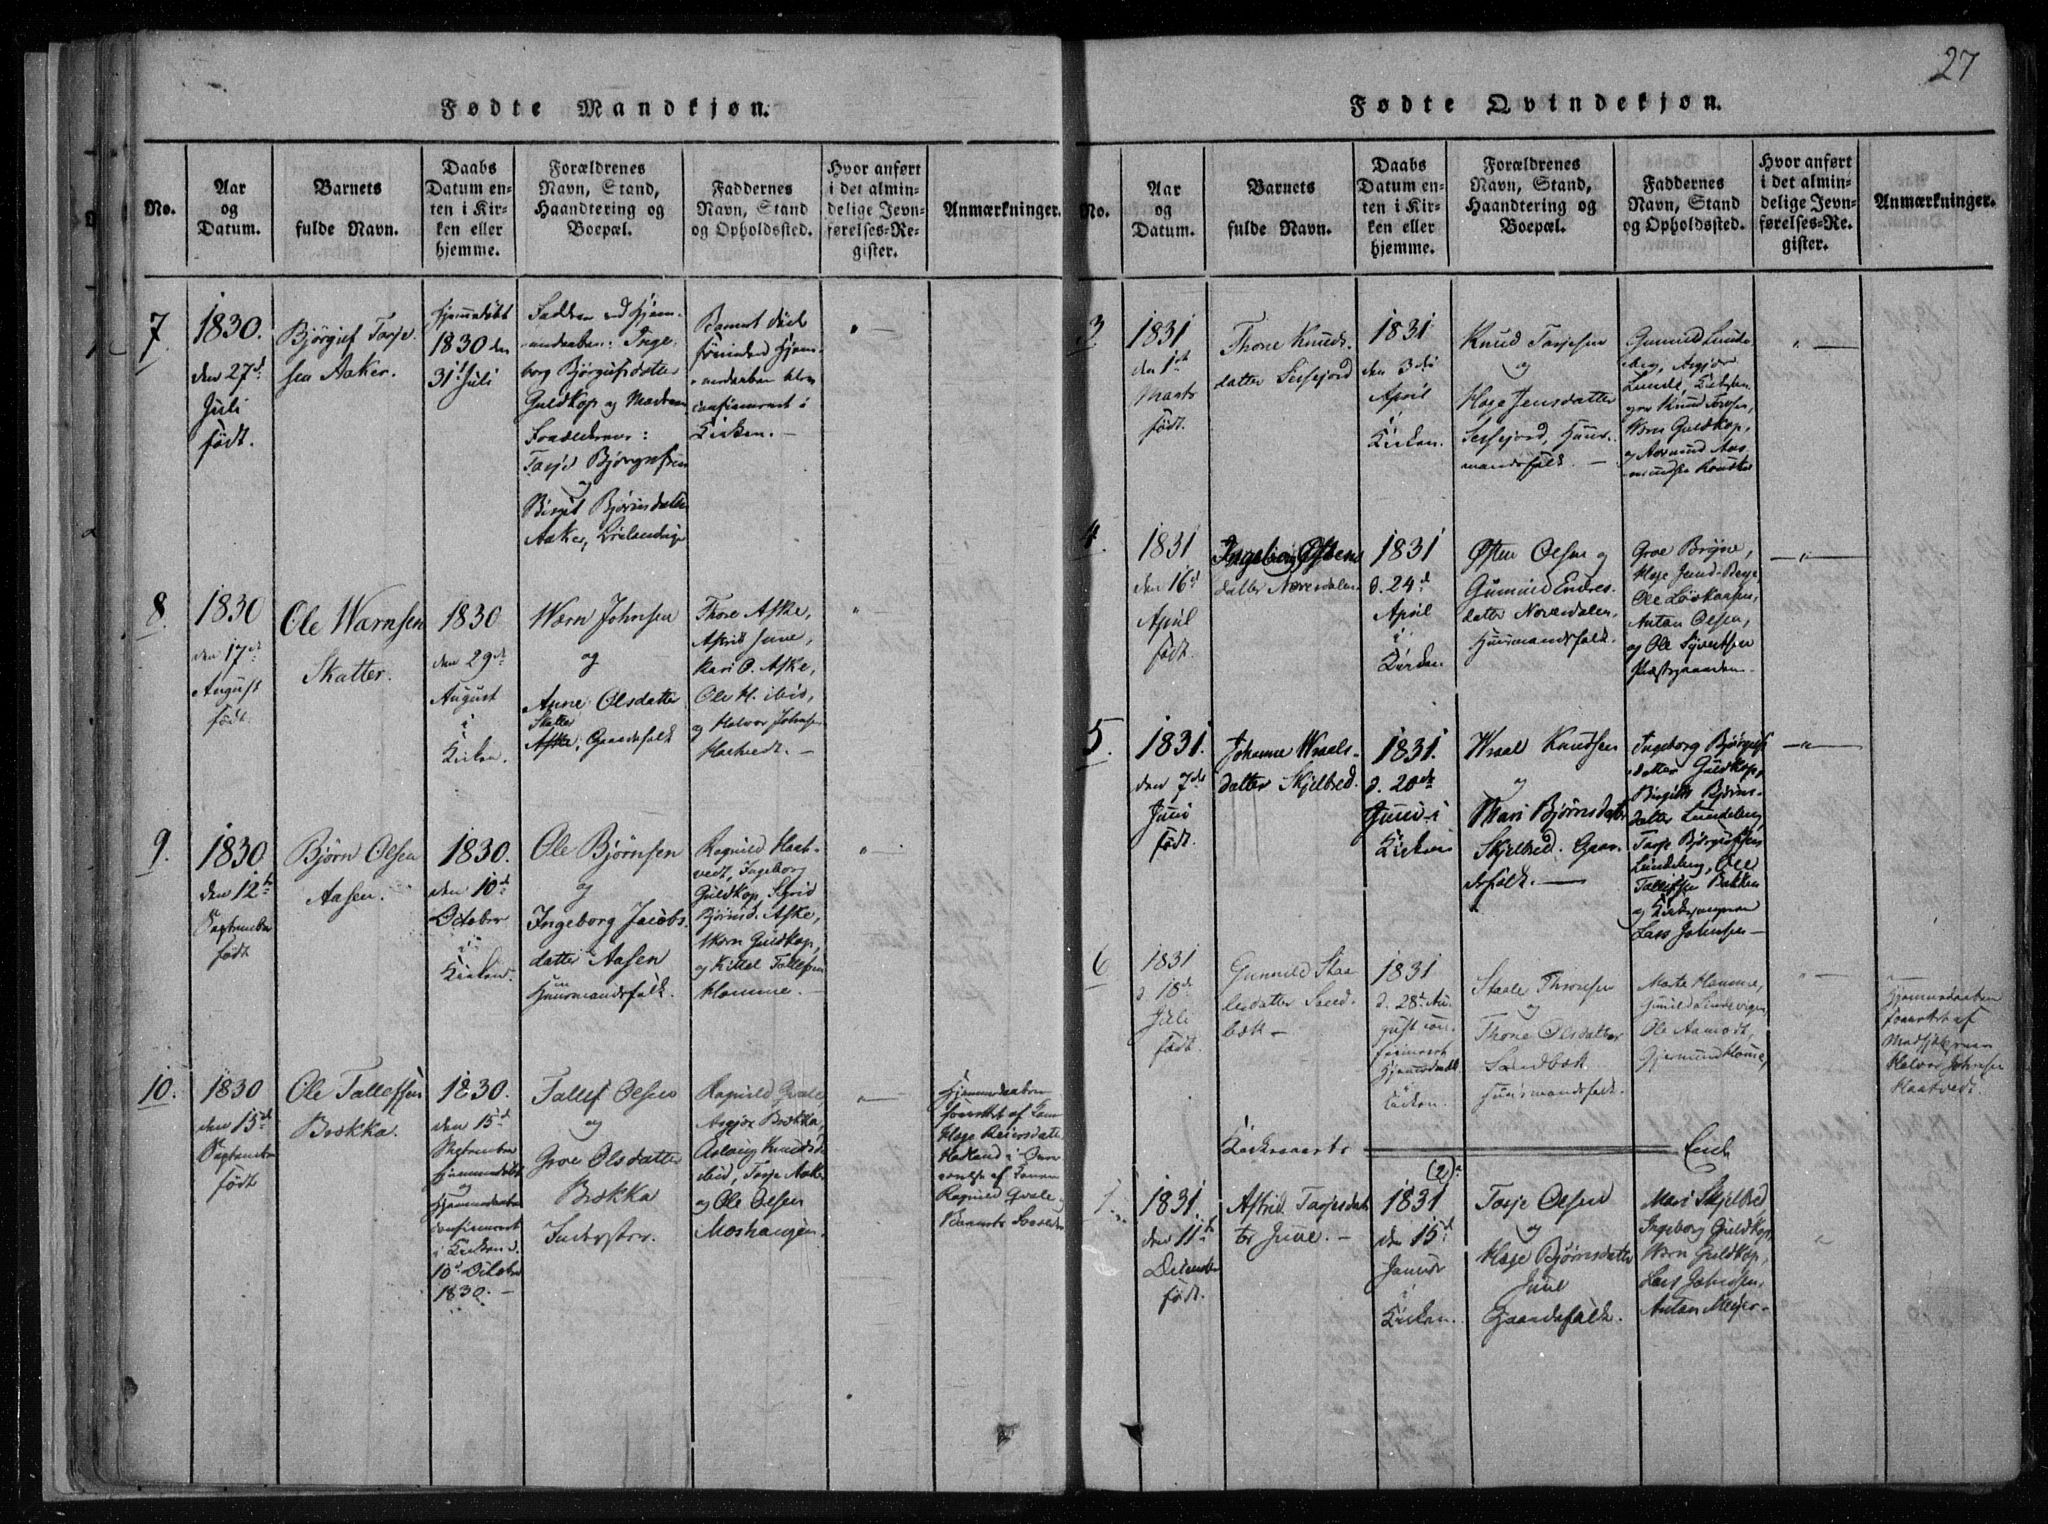 27
Fødte Mandkjøn.
No.
Aar
og
Datum.
Barnets
fulde Navn.
Daabs
Datum en-
ten i Kir-
ken eller
hjemme.
Forældrenes
Navn, Stand,
Haandtering og
Boepæl.
Faddernes
Navn, Stand
og Opholdssted.
Hvor anført
i det almin-
delige Jevn-
førelses-Re-
gister.
Anmærkninger.
7
1830.
den 27d
Juli
født.
Bjørguf Tarje
sen Aaker.
Hjemmedøbt
1830 den
31t Juli
Inge
borg Bjørgufsdatter
Guldkop og
Forældrene:
Tarje Bjørgufsen
og
Birgit Bjørnsdatter
Aaker,
Barnet død
førinden Hjem-
medaaben blev
confirmeret i
Kirken. —
8.
1830
den 17de
August
født.
Ole Wærnsen
Skatter.
1830
den 29de
August
i
Kirken.
Wærn Johnsen
og
Anne Olsdatter
Skatter
Aske, Gaardefolk
Thore Aske,
Astrid June,
Kari O. Aske,
Ole H. ibid,
og Halvor Johnsen
Hartvedt. —
9.
1830
den 12te
September
født
Bjørn Olsen
Aasen.
1830.
den 10d
October
i
Kirken.
Ole Bjørnsen
og
Ingeborg Jacobs
datter Aasen
Huusmandsfolk.
Ragnild Hart-
vedt, Ingeborg
Guldkop, Sigrid
Bjørnsd. Aske,
Wærn Guldkop,
og Kittel Tallefsen
Homme. —
10.
1830
den 15d
September
født
Ole Tallefsen
Brokka.
1830.
den 15d
September
hjemmedøbt
og
Hjemmedaaben
confirmeret
i Kirken d.
10d October
1830. —
Tallef Olsen
og
Groe Olsdatter
Brokka
Inderster.
Ragnild Qvale
Asgjør Brokka,
Aslaug Knudsd.
ibid, Tarje Aaker
og Ole Olsen
Moshaugen.
Hjemmedaaben
forrettet af
Hage Reiersdatter
Ragnild Qvale
Barnets Forældre
Fødte Qvindekjøn.
No.
Aar
og
Datum.
Barnets
fulde Navn.
Daabs
Datum en-
ten i Kir-
ken eller
hjemme.
Forældrenes
Navn, Stand,
Haandtering og
Boepæl.
Faddernes
Navn, Stand
og Opholdssted.
Hvor anført
i det almin-
delige Jevn-
førelses-Re-
gister.
Anmærkninger.
3
1831
den 1st
Marts
født.
Thone Knuds-
datter Sessejord
1831
den 3di
April
i
Kirken.
Knud Tarjesen
og
Hage Jensdatter
Sessejord, Huus-
mandsfolk. —
Gunnild Lunde
berg, Asgjør
Lunde,
Knud Tarjesen,
Wærn Guldkop,
og Aasmund Aas
mundsen
4.
1831
den 16d
April
født.
Ingeborg Østens
datter Norredalen
1831
d. 24d
April
i
Kirken
Østen Olsen og
Gunnild Endres-
datter Norredalen,
Huusmandsfolk.
Groe Brijne,
Anton Olsen,
og Ole Syvertsen
Præstegaarden —
5.
1831.
den 7de
Juni
født.
Johanne Wraals
datter Skjelbred.
1831.
d. 20de
Juni i
Kirken
Wraal Knudsen
og
Mari Bjørnsdatter
Skjelbred. Gaar-
defolk. —
Ingeborg Bjørgufs
datter Guldkop,
Birgith Bjørns-
datter Lundeberg,
Tarje Bjørgufsen
Lundeberg, Ole
Tallefsen Bakken
og Kirkesangeren
Lars Johnsen —
6
1831
d. 18d
Juli
født.
Gunnild Staa
lesdatter Sand-
bæk —
1831
d. 28d Au-
gust con-
firmeret
Hjemmedaab i
Kirken.
Staale Thronsen
og
Thone Olsdatter
Sandbæk
Huusmandsfolk.
Marte Homme,
Gunild Lindevigen
Ole Aamodt,
Gjermund Homme,
Hjemmedaaben
forrettet af
Halvor Johnsen
Hartvedt.
7.
1831.
den 11te
December
født.
Astrid Tarjesdat
ter June. —
1831
den 15d
Januar
i
Kirken.
Tarje Olsen
og
Hage Bjørnsdatter
June
Gaardefolk.
Mari Skjelbred
Ingeborg Guldkop,
Wærn Guldkop,
Lars Johnsen,
Anton Meyer. —